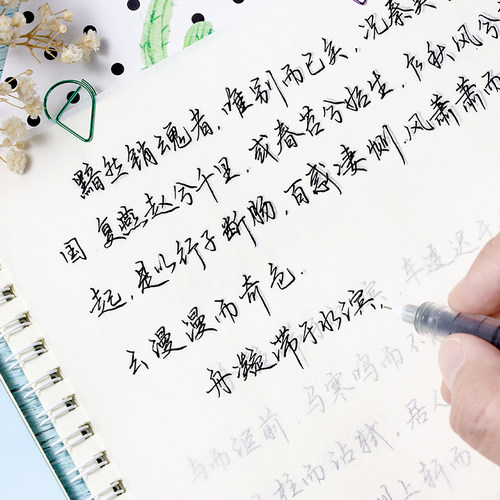 黯然销魂者，唯别而已矣，况秦吴
国 复燕赵兮千里，或春苔兮始生，乍秋风兮
起，是以行子断肠，百感凄恻，风萧萧而
云漫漫而奇色．
舟凝滞于水滨，车逶迟于
与而讵前，马寒鸣而不
柱而沾轼．居人
上轩而